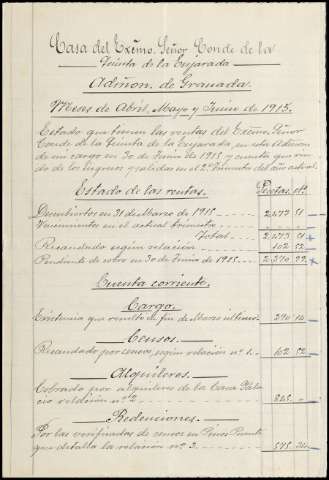 Casa del Excmo. Señor Conde de la
Quinta de la Enjarada
Admón. de Granada.
Meses de Abril, Mayo y Junio de 1915.
Estado que tienen las rentas del Excmo. Señor
Conde de la Quinta de la Enjarada, en esta Admón
de mi cargo en 30 de Junio de 1915 y cuenta que rin-
do de los ingresos y salidas en el 2º trimestre del año actual.
Estado de las rentas. Pesetas. cts.
Descubiertos en 31 de Marzo de 1915 2,473 51
Vencimientos en el actual trimestre
Total 2,473 51
Recaudado según relación 102 52
Pendiente de cobro en 30 de Junio de 1915 2,370 99
Cuenta corriente.
Cargo.
Existencia que resultó á fin de Marzo último 290 14
Censos.
Recaudado por censos según relación nº 1. 102 52
Alquileres.
Cobrado por alquileres de la Casa Pala-
cio relación nº 2 825
Redenciones.
Por las verificadas de censos en Pinos Puente
que detalla la relación nº 3. 595